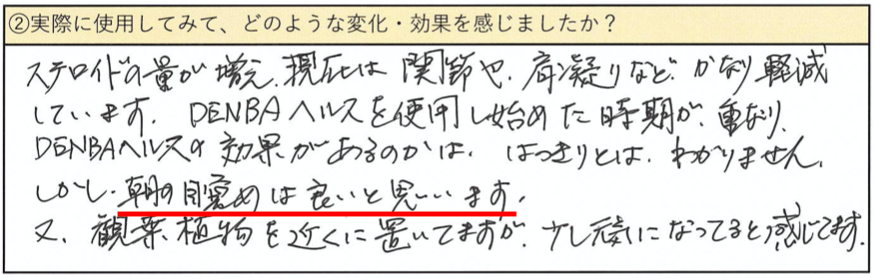 ②実際に使用してみて、どのような変化・効果を感じましたか？
ステロイドの量が増え、現在は関節や、肩凝りなど、かなり軽減
しています。DENBAヘルスを使用し始めた時期が、重なり、
DENBAヘルスの効果があるのかは、はっきりとは、わかりません。
しかし、朝の目覚めは良いと思います。
又、観葉植物を近くに置いてますが、少し元気になってると感じてます。